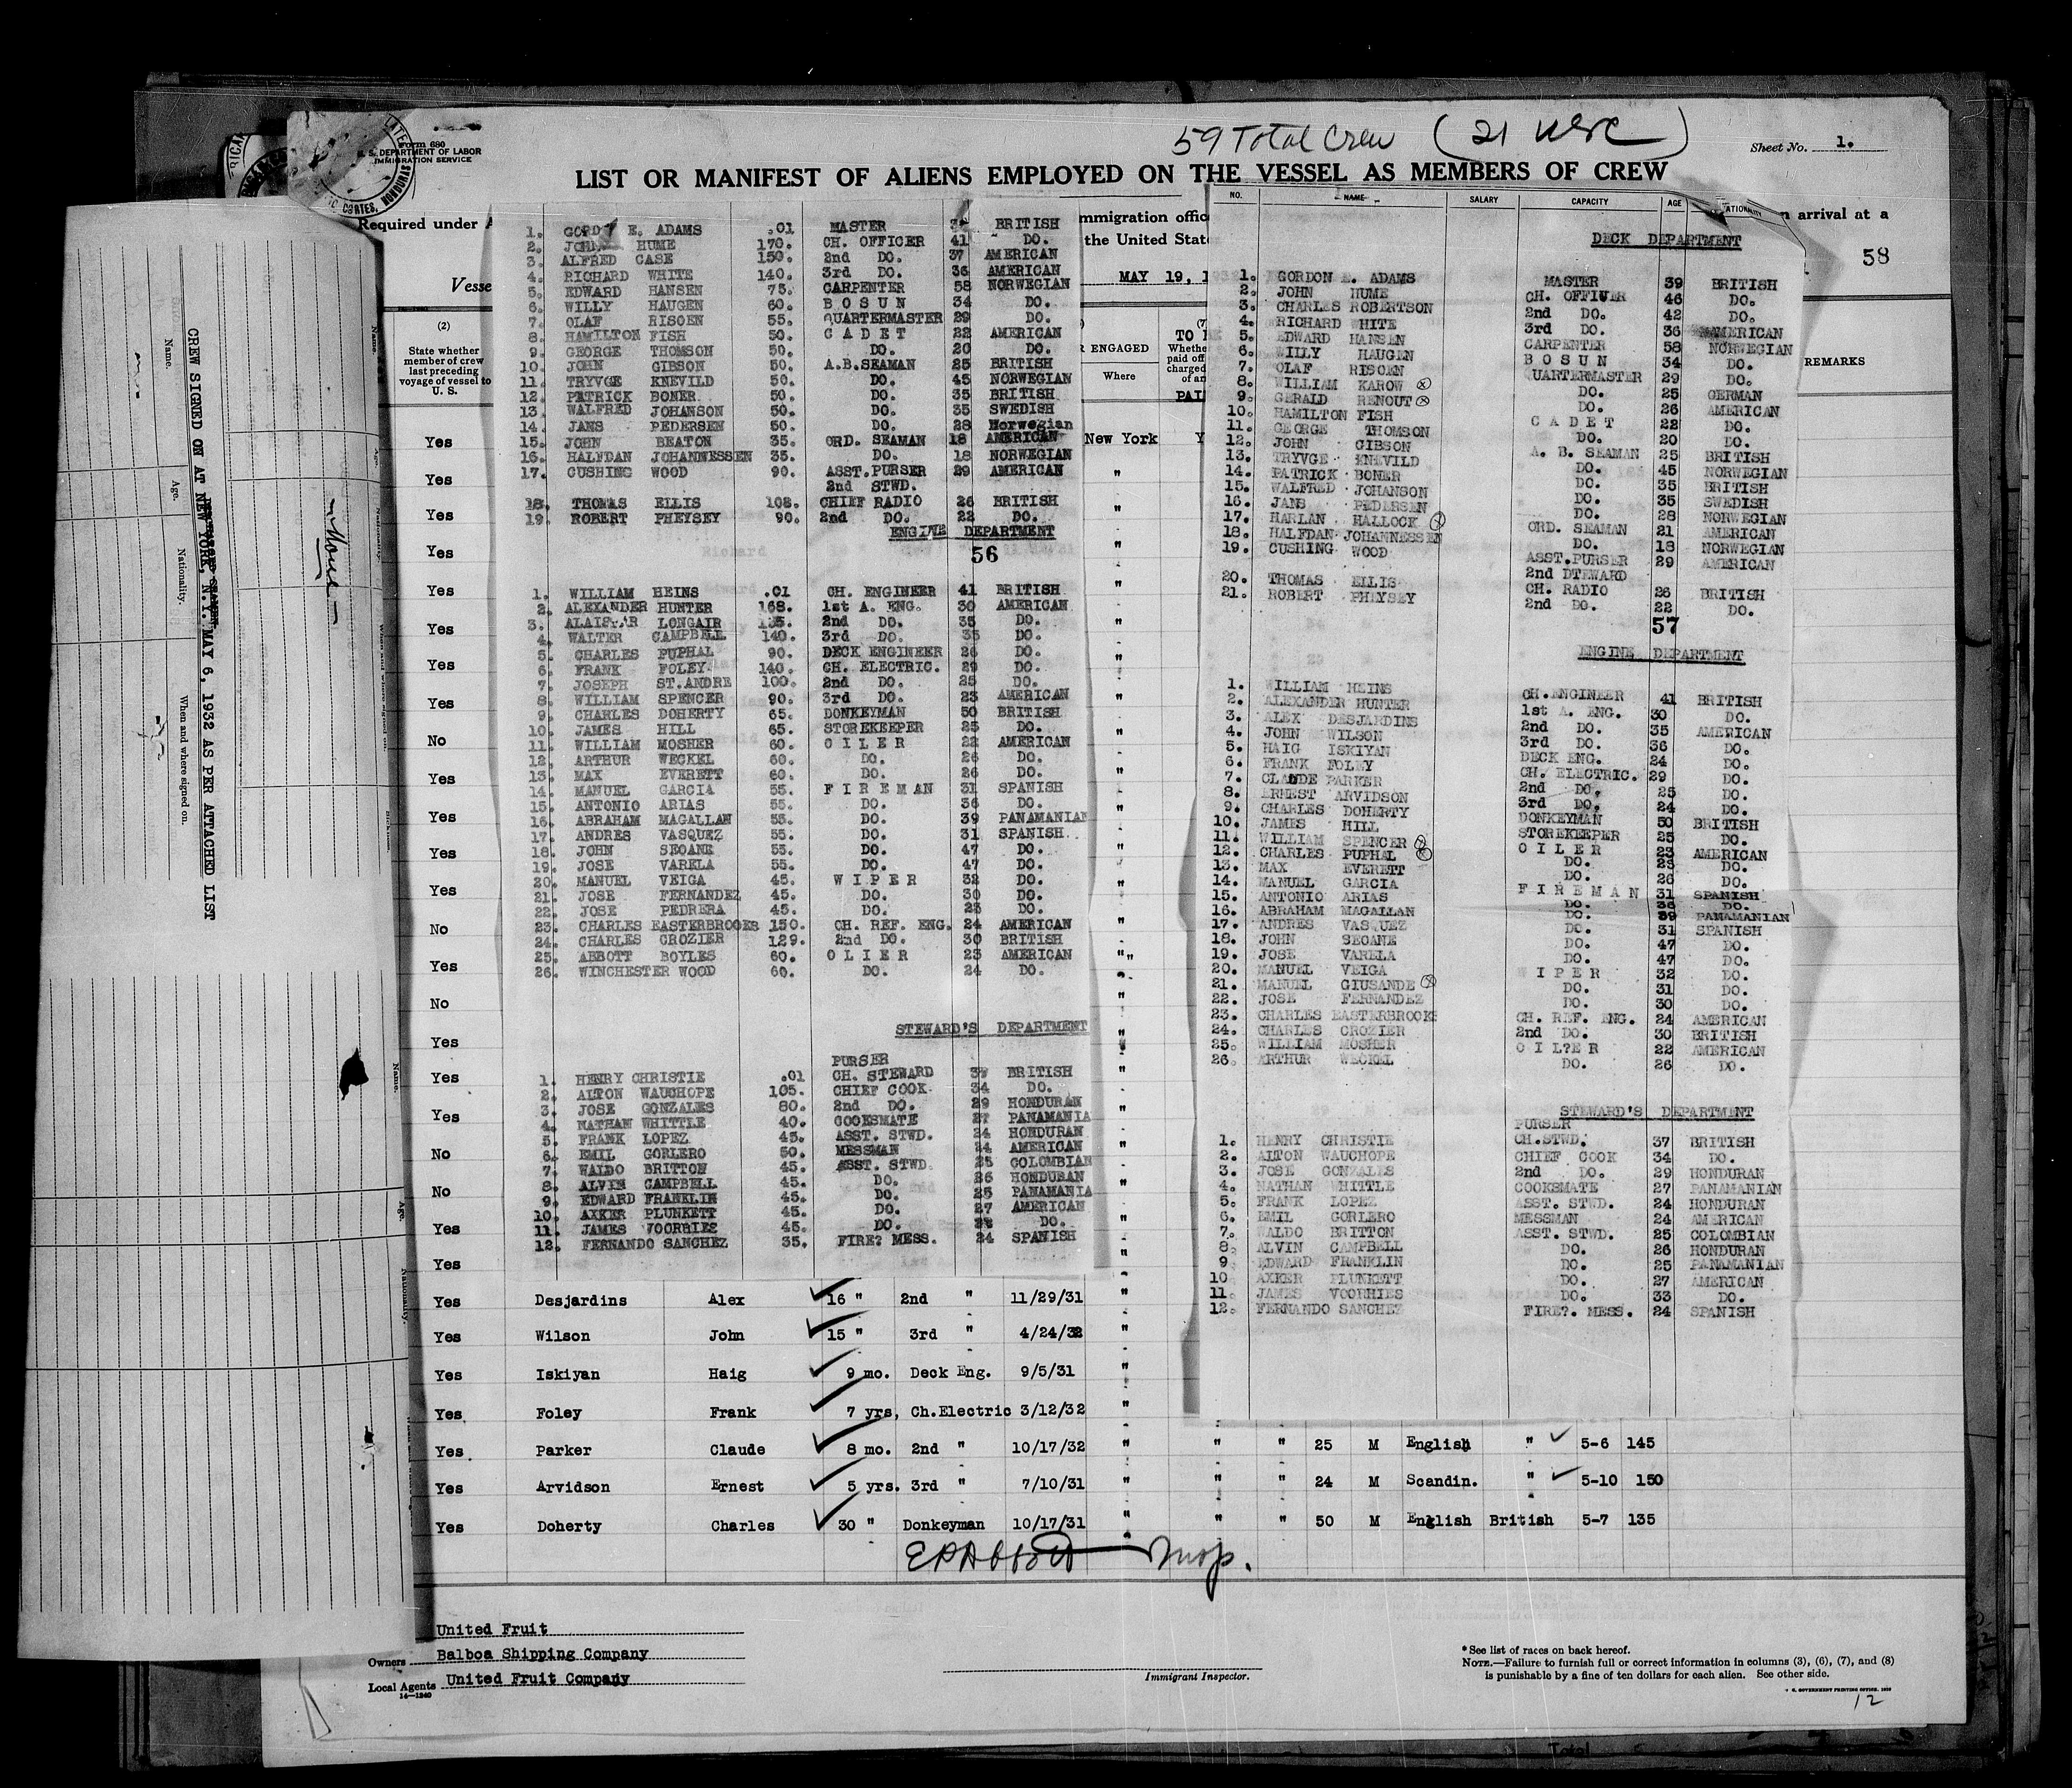 59 Total Crew (21 USC)
Form 680
U. S. DEPARTMENT OF LABOR
IMMIGRATION SERVICE
Sheet No. 1.
LIST OR MANIFEST OF ALIENS EMPLOYED ON THE VESSEL AS MEMBERS OF CREW
Required under A
mmigration offic
n arrival at a
the United Stat
58
Vesse
MAY 19, 1
CORTES, HONDURAS
CREW SIGNED ON AT NEW YORK, N.Y. MAY 6, 1932 AS PER ATTACHED LIST
Name.
Age.
Nationality.
When and where signed on.
None
Name.
Age.
Nationality.
(2)
State whether
member of crew
last preceding
voyage of vessel to
U. S.
R ENGAGED
Where
TO
Whethe
paid off
charged
of an
PAI
REMARKS
New York Y
1. GORD E. ADAMS .01 MASTER BRITISH
2. JOHN HUME 170. CH. OFFICER 41 DO.
3. ALFRED CASE 150. 2nd DO. 37 AMERICAN
4. RICHARD WHITE 140. 3rd DO. 36 AMERICAN
5. EDWARD HANSEN 75. CARPENTER 58 NORWEGIAN
6. WILLY HAUGEN 60. B O S U N 34 DO.
7. OLAF RISOEN 55. QUARTERMASTER 29 DO.
8. HAMILTON FISH 50. C A D E T 22 AMERICAN
9. GEORGE THOMSON 50. DO. 20 DO.
10. JOHN GIBSON 50. A.B.SEAMAN 25 BRITISH
11. TRYVGE KNEVILD 50. DO. 45 NORWEGIAN
12. PATRICK BONER 50. DO. 35 BRITISH
13. WALFRED JOHANSON 50. DO. 35 SWEDISH
14. JANS PEDERSEN 50. DO. 28 Norwegian
15. JOHN BEATON 35. ORD. SEAMAN 18 AMERICAN
16. HALFDAN JOHANNESSEN 35. DO. 18 NORWEGIAN
17. CUSHING WOOD 90. ASST.PURSER 29 AMERICAN
2nd STWD.
18. THOMAS ELLIS 108. CHIEF RADIO 26 BRITISH
19. ROBERT PHEYSEY 90. 2nd DO. 22 DO.
ENGINE DEPARTMENT
56
1. WILLIAM HEINS .01 CH. ENGINEER 41 BRITISH
2. ALEXANDER HUNTER 168. 1st A. ENG. 30 AMERICAN
3. ALAISTAR LONGAIR 135. 2nd DO. 35 DO.
4. WALTER CAMPBELL 140. 3rd DO. 35 DO.
5. CHARLES PUPHAL 90. DECK ENGINEER 26 DO.
6. FRANK FOLEY. 140. CH. ELECTRIC. 29 DO.
7. JOSEPH ST.ANDRE 100. 2nd DO. 25 DO.
8. WILLIAM SPENCER 90. 3rd DO. 23 AMERICAN
9. CHARLES DOHERTY 65. DONKEYMAN 50 BRITISH
10. JAMES HILL 65. STOREKEEPER 25 DO.
11. WILLIAM MOSHER 60. O I L E R 22 AMERICAN
12. ARTHUR WECKEL 60. DO. 26 DO.
13. MAX EVERETT 60. DO. 26 DO.
14. MANUEL GARCIA 55. F I R E M A N 31 SPANISH
15. ANTONIO ARIAS 55. DO. 36 DO.
16. ABRAHAM MAGALLAN 55. DO. 39 PANAMANIAN
17. ANDRES VASQUEZ 55. DO. 31 SPANISH.
18. JOHN SEOANE 55. DO. 47 DO.
19. JOSE VARELA 55. DO. 47 DO.
20. MANUEL VEIGA 45. W I P E R 32 DO.
21. JOSE FERNANDEZ 45. DO. 30 DO.
22. JOSE PEDRERA 45. DO. 25 DO.
23. CHARLES EASTERBROOKS 150. CH. REF. ENG. 24 AMERICAN
24. CHARLES CROZIER 129. 2nd DO. 30 BRITISH
25. ABBOTT BOYLES 60. O L I E R 23 AMERICAN
26. WINCHESTER WOOD 60. DO. 24 DO.
STEWARD'S DEPARTMENT
PURSER
1. HENRY CHRISTIE .01 CH. STEWARD 37 BRITISH
2. ALTON WAUCHOPE 105. CHIEF COOK 34 DO.
3. JOSE GONZALES 80. 2nd DO. 29 HONDURAN
4. NATHAN WHITTLE 40. COOKSMATE 27 PANAMANIA
5. FRANK LOPEZ 45. ASST. STWD. 24 HONDURAN
6. EMIL GORLERO 50. MESSMAN 24 AMERICAN
7. WALDO BRITTON 45. ASST. STWD. 25 COLOMBIAN
8. ALVIN CAMPBELL 45. DO. 26 HONDURAN
9. EDWARD FRANKLIN 45. DO. 25 PANAMANIA
10. AXKER PLUNKETT 45. DO. 27 AMERICAN
11. JAMES VOORHIES 45. DO. 33 DO.
12. FERNANDO SANCHEZ 35. FIRE? MESS. 24 SPANISH
NO. NAME SALARY CAPACITY AGE NATIONALITY
DECK DEPARTMENT
1. GORDON E. ADAMS MASTER 39 BRITISH
2. JOHN HUME CH. OFFIVER 46 DO.
3. CHARLES ROBERTSON 2nd DO. 42 DO.
4. RICHARD WHITE 3rd DO. 36 AMERICAN
5. EDWARD HANSEN CARPENTER 58 NORWEGIAN
6. WILLY HAUGEN B O S U N 34 DO.
7. OLAF RISOEN QUARTERMASTER 29 DO.
8. WILLIAM KAROW DO. 25 GERMAN
9. GERALD RENOUT DO. 26 AMERICAN
10. HAMILTON FISH C A D E T 22 DO.
11. GEORGE THOMSON DO. 20 DO.
12. JOHN GIBSON A. B. SEAMAN 25 BRITISH
13. TRYVGE KNEVILD DO. 45 NORWEGIAN
14. PATRICK BONER DO. 35 BRITISH
15. WALFRED JOHANSON DO. 35 SWEDISH
16. JANS PEDERSEN DO. 28 NORWEGIAN
17. HARLAN HALLOCK ORD. SEAMAN 21 AMERICAN
18. HALFDAN JOHANNESSEN DO. 18 NORWEGIAN
19. CUSHING WOOD ASST.PURSER 29 AMERICAN
2nd DTEWARD
20. THOMAS ELLIS CH. RADIO 26 BRITISH
21. ROBERT PHEYSEY 2nd DO. 22 DO.
57
ENGINE DEPARTMENT
1. WILLIAM HEINS CH.ENGINEER 41 BRITISH
2. ALEXANDER HUNTER 1st A. ENG. 30 DO.
3. ALEX DESJARDINS 2nd DO. 35 AMERICAN
4. JOHN WILSON 3rd DO. 36 DO.
5. HAIG ISKIYAN DECK ENG. 24 DO.
6. FRANK FOLEY CH. ELECTRIC. 29 DO.
7. CLAUDE PARKER 2nd DO. 25 DO.
8. ERNEST ARVIDSON 3rd DO. 24 DO.
9. CHARLES DOHERTY DONKEYMAN 50 BRITISH
10. JAMES HILL STOREKEEPER 25 DO.
11. WILLIAM SPENCER O I L E R 23 AMERICAN
12. CHARLES PUPHAL DO. 25 DO.
13. MAX EVERETT DO. 26 DO.
14. MANUEL GARCIA F I R E M A N 31 SPANISH
15. ANTONIO ARIAS DO. 36 DO.
16. ABRAHAM MAGALLAN DO. 39 PANAMANIAN
17. ANDRES VASQUEZ DO. 31 SPANISH
18. JOHN SEOANE DO. 47 DO.
19. JOSE VARELA DO. 47 DO.
20. MANUEL VEIGA WIPER 32 DO.
21. MANUEL GIUSANDE DO. 31 DO.
22. JOSE FERNANDEZ DO. 30 DO.
23. CHARLES EASTERBROOKS CH. REF. ENG. 24 AMERICAN
24. CHARLES CROZIER 2nd DO. 30 BRITISH
25. WILLIAM MOSHER O I L?E R 22 AMERICAN
26. ARTHUR WECKEL DO. 26 DO.
STEWARD'S DEPARTMENT
PURSER
1. HENRY CHRISTIE CH.STWD. 37 BRITISH
2. ALTON WAUCHOPE CHIEF COOK 34 DO.
3. JOSE GONZALES 2nd DO. 29 HONDURAN
4. NATHAN WHITTLE COOKSMATE 27 PANAMANIAN
5. FRANK LOPEZ ASST. STWD. 24 HONDURAN
6. EMIL GORLERO MESSMAN 24 AMERICAN
7. WALDO BRITTON ASST. STWD. 25 COLOMBIAN
8. ALVIN CAMPBELL DO. 26 HONDURAN
9. EDWARD FRANKLIN DO. 25 PANAMANIAN
10 AXKER PLUNKETT DO. 27 AMERICAN
11. JAMES VOORHIES DO. 33 DO.
12. FERNANDO SANCHEZ FIRE?. MESS. 24 SPANISH
Yes
Yes
Yes
Yes
Yes
Yes
Yes
Yes
No
Yes
Yes
Yes
Yes
No
Yes
No
Yes
Yes
Yes
No
No
Yes
Yes
Yes Desjardins Alex 16 " 2nd " 11/29/31 "
Yes Wilson John 15 " 3rd " 4/24/32 "
Yes Iskiyan Haig 9 mo. Deck Eng. 9/5/31 "
Yes Foley Frank 7 yrs, Ch.Electric 3/12/32 "
Yes Parker Claude 8 mo. 2nd " 10/17/32 " " " 25 M English " 5-6 145
Yes Arvidson Ernest 5 yrs. 3rd " 7/10/31 " " " 24 M Scandin. " 5-10 150
Yes Doherty Charles 30 " Donkeyman 10/17/31 " " " 50 M English British 5-7 135
United Fruit
Owners Balboa Shipping Company
Local Agents United Fruit Company
14—1240
Immigrant Inspector.
* See list of races on back hereof.
NOTE.—Failure to furnish full or correct information in columns (3), (6), (7), and (8)
is punishable by a fine of ten dollars for each alien. See other side.
U. S. GOVERNMENT PRINTING OFFICE
12
Total